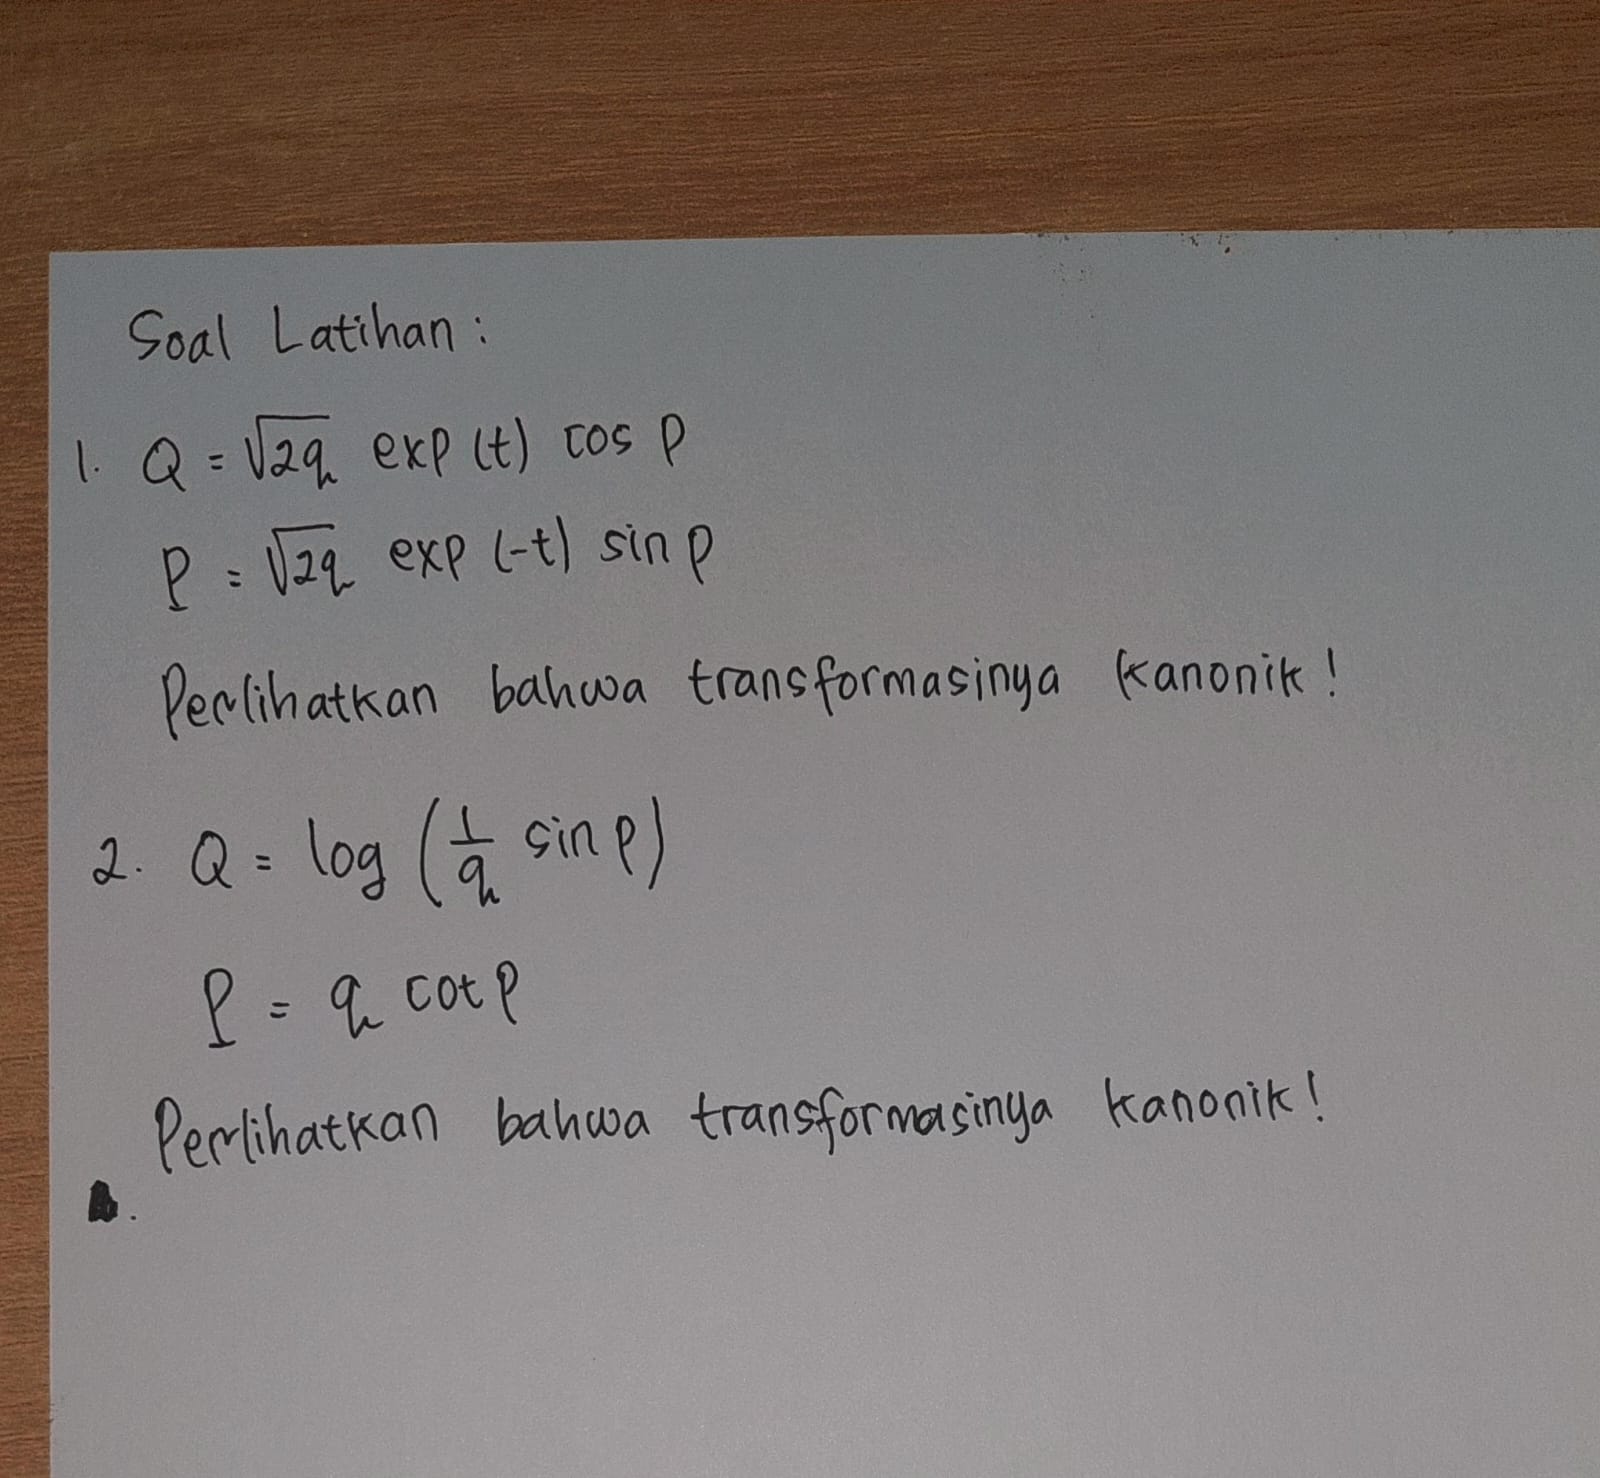 Soal Latihan :
1. Q = √2q exp (t) cos p
P = √2q exp (-t) sin p
Perlihatkan bahwa transformasinya kanonik !
2. Q = log (1/q sin p)
P = q cot p
Perlihatkan bahwa transformasinya kanonik !